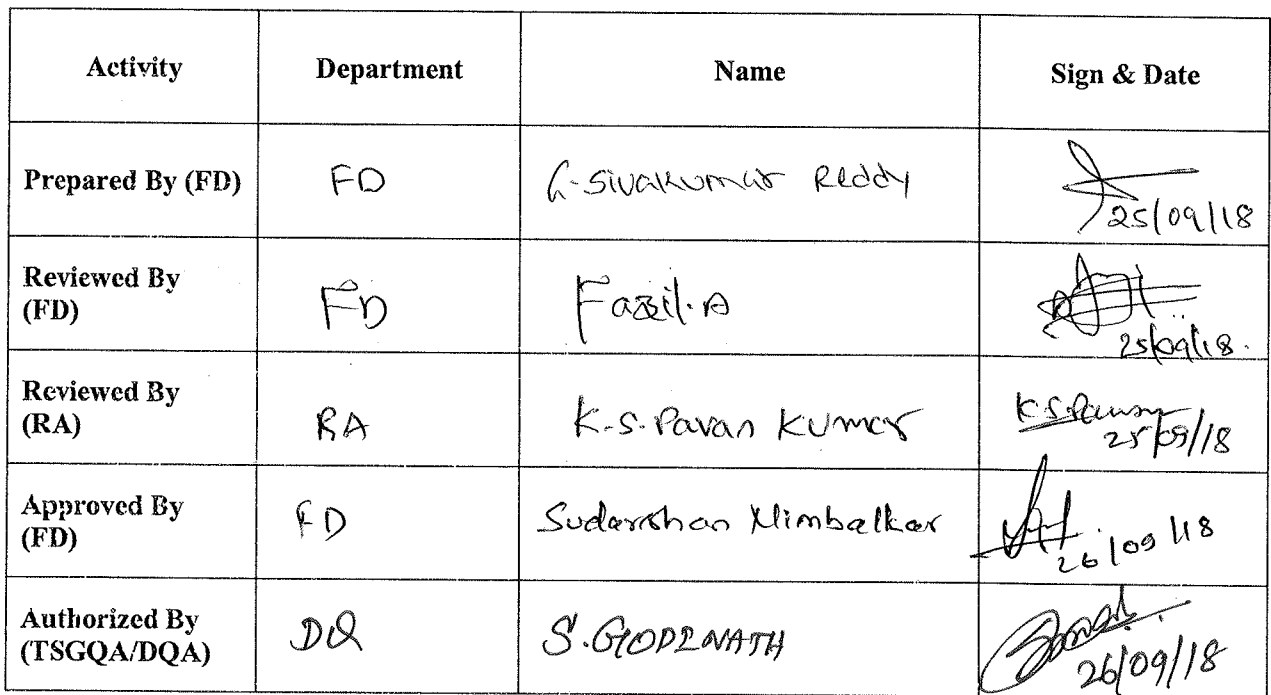 Activity Department Name Sign & Date
Prepared By (FD) FD G-Sivakumar Reddy 25/09/18
Reviewed By
(FD) FD Fazil.A 25/09/18.
Reviewed By
(RA) RA K.S.Pavan Kumar K.S.Pavan 25/09/18
Approved By
(FD) FD Sudarshan Nimbalkar 26/09/18
Authorized By
(TSGQA/DQA) DQ S.GOPINATH 26/09/18